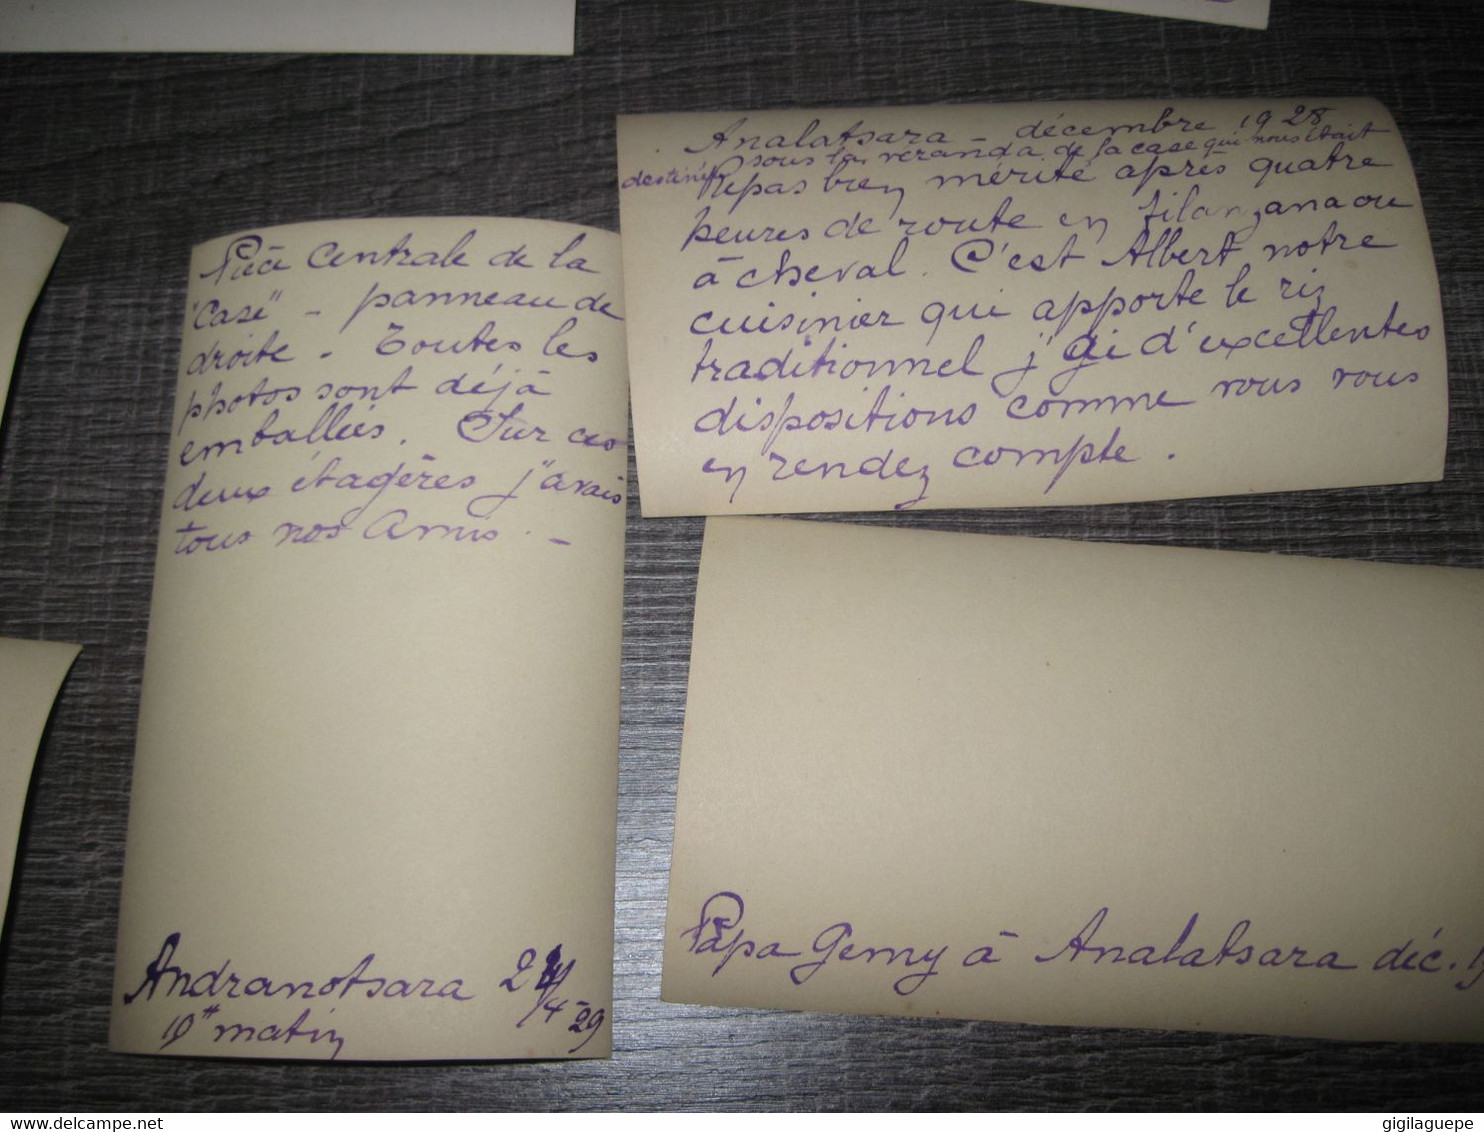 Pièce Centrale de la
"Case" - panneau de
droite. Toutes les
photos sont déjà
emballées. Sur ces
deux étagères j'avais
tous nos Amis. -
Andranotsara
10H matin 4 29
Analatsara - décembre 1928
sous la veranda de la case qui nous était
destinée
Repas bien mérité après quatre
heures de route en filanzana ou
à cheval. C'est Albert notre
cuisinier qui apporte le riz
traditionnel j'ai d'excellentes
dispositions comme vous vous
en rendez compte.
Papa Gemy à Analatsara déc.
delcampe.net
gigilaguepe